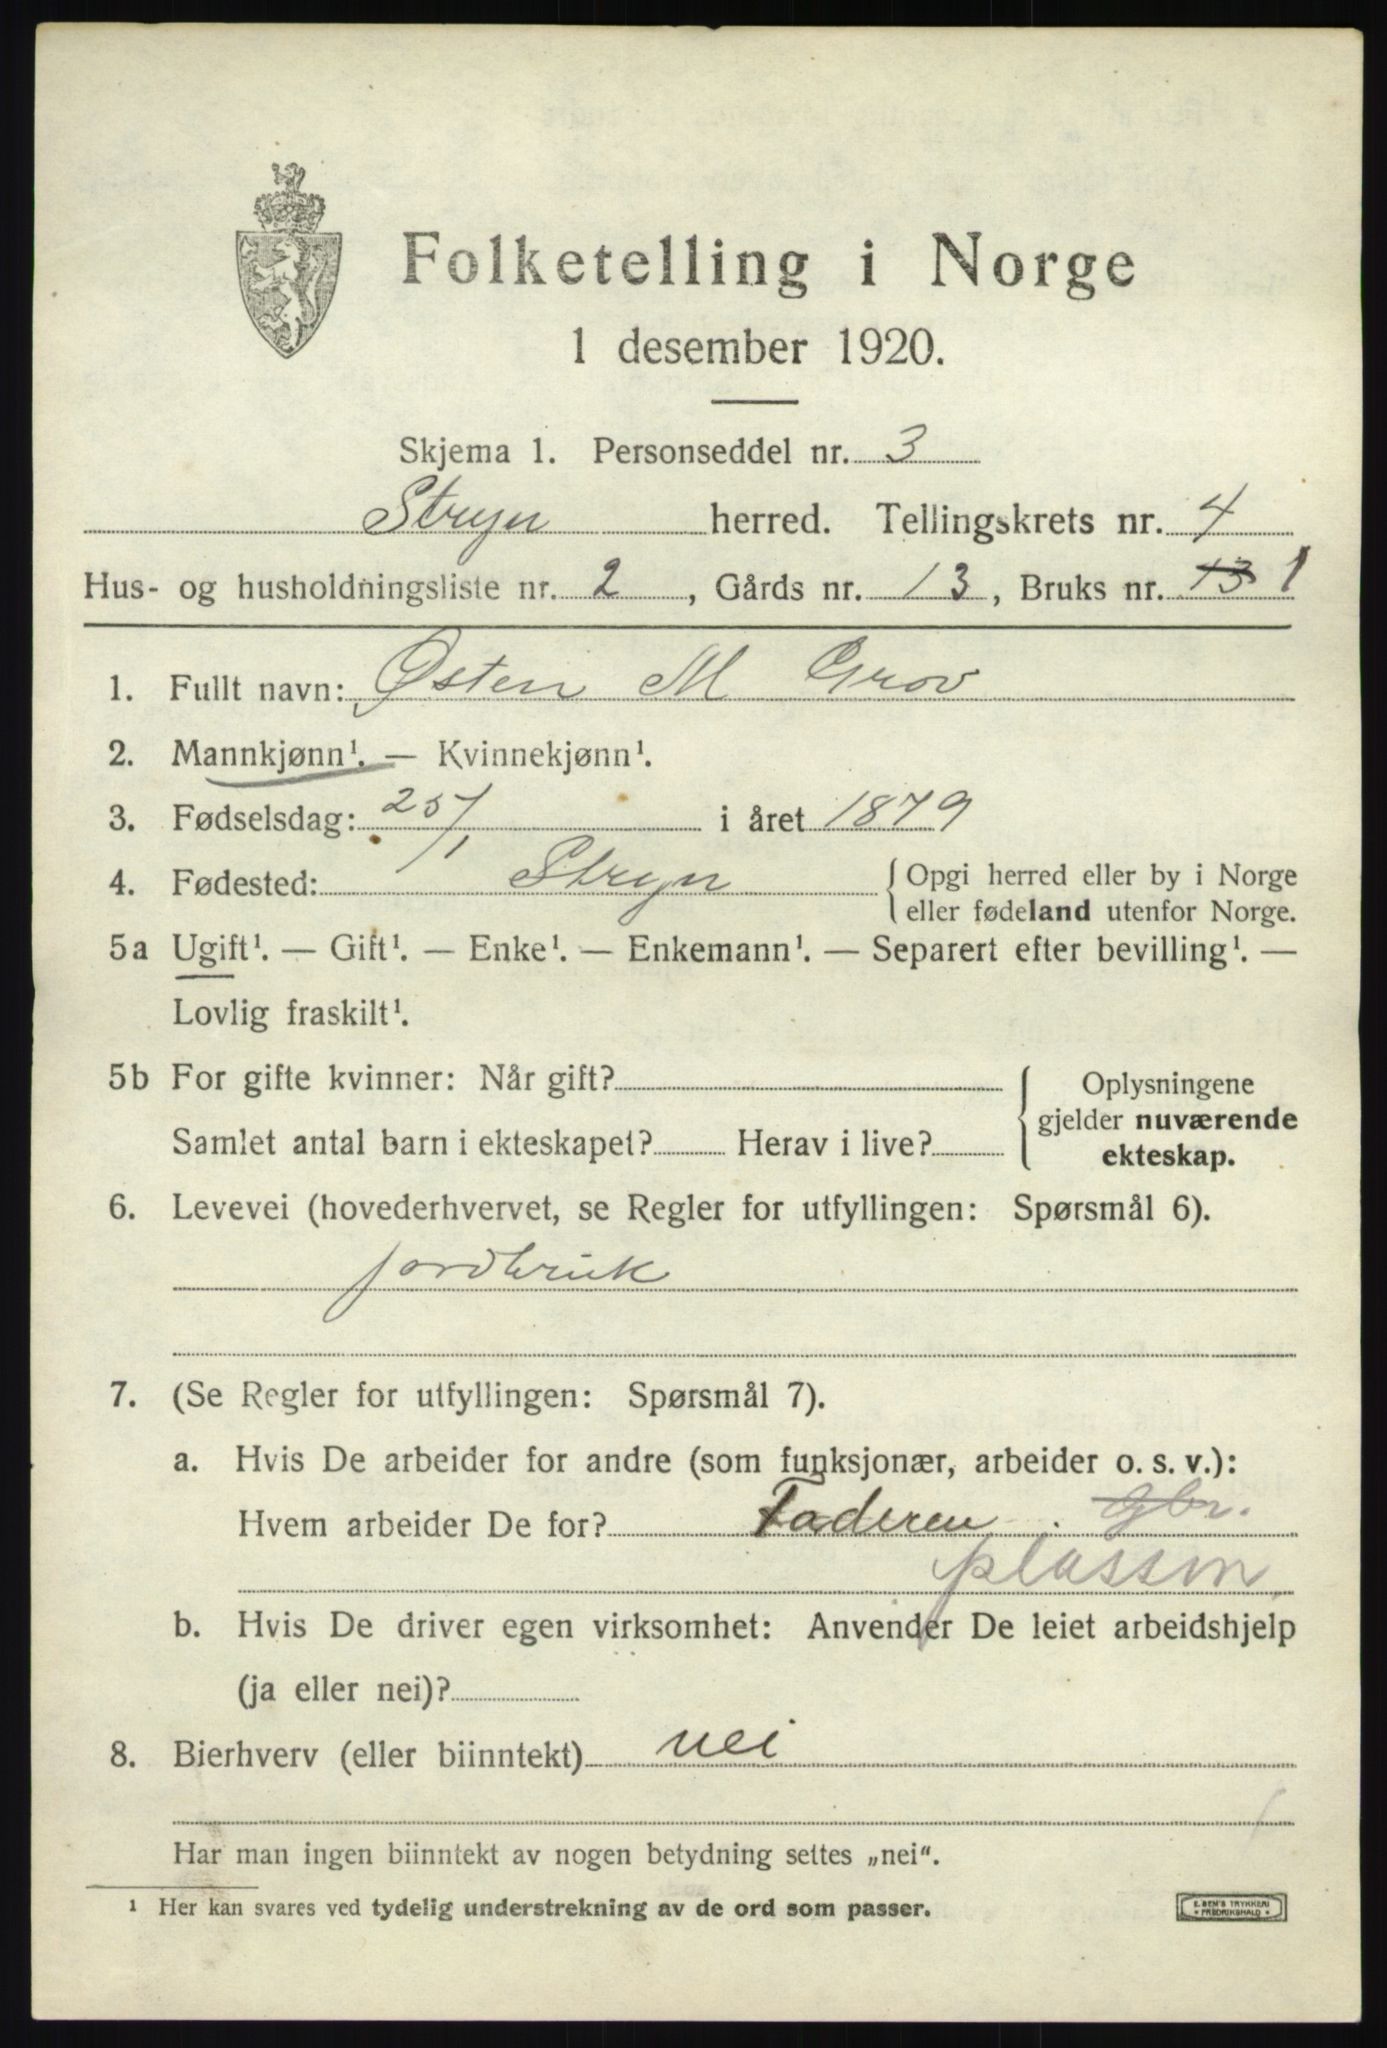 Folketelling i Norge
1 desember 1920.
Skjema 1. Personseddel nr. 3
Stryn herred. Tellingskrets nr. 4
Hus- og husholdningsliste nr. 2, Gårds nr. 13, Bruks nr. 13 1
1. Fullt navn: Østen M Grov
2. Mannkjønn¹. — Kvinnekjønn¹.
3. Fødselsdag: 25/1 i året 1879
4. Fødested: Stryn { Opgi herred eller by i Norge
eller fødeland utenfor Norge.
5a Ugift¹. — Gift¹. — Enke¹. — Enkemann¹. — Separert efter bevilling¹. —
Lovlig fraskilt¹.
5b For gifte kvinner: Når gift? { Oplysningene
gjelder nuværende
Samlet antal barn i ekteskapet? Herav i live? ekteskap.
6. Levevei (hovederhvervet, se Regler for utfyllingen: Spørsmål 6).
jordbruk
7. (Se Regler for utfyllingen: Spørsmål 7).
a. Hvis De arbeider for andre (som funksjonær, arbeider o. s. v.):
Hvem arbeider De for? Faderen . gbr.
plassm
b. Hvis De driver egen virksomhet: Anvender De leiet arbeidshjelp
(ja eller nei)?
8. Bierhverv (eller biinntekt) nei
Har man ingen biinntekt av nogen betydning settes „nei".
¹ Her kan svares ved tydelig understrekning av de ord som passer.
E. SEM'S TRYKKERI
FREDRIKSHALD